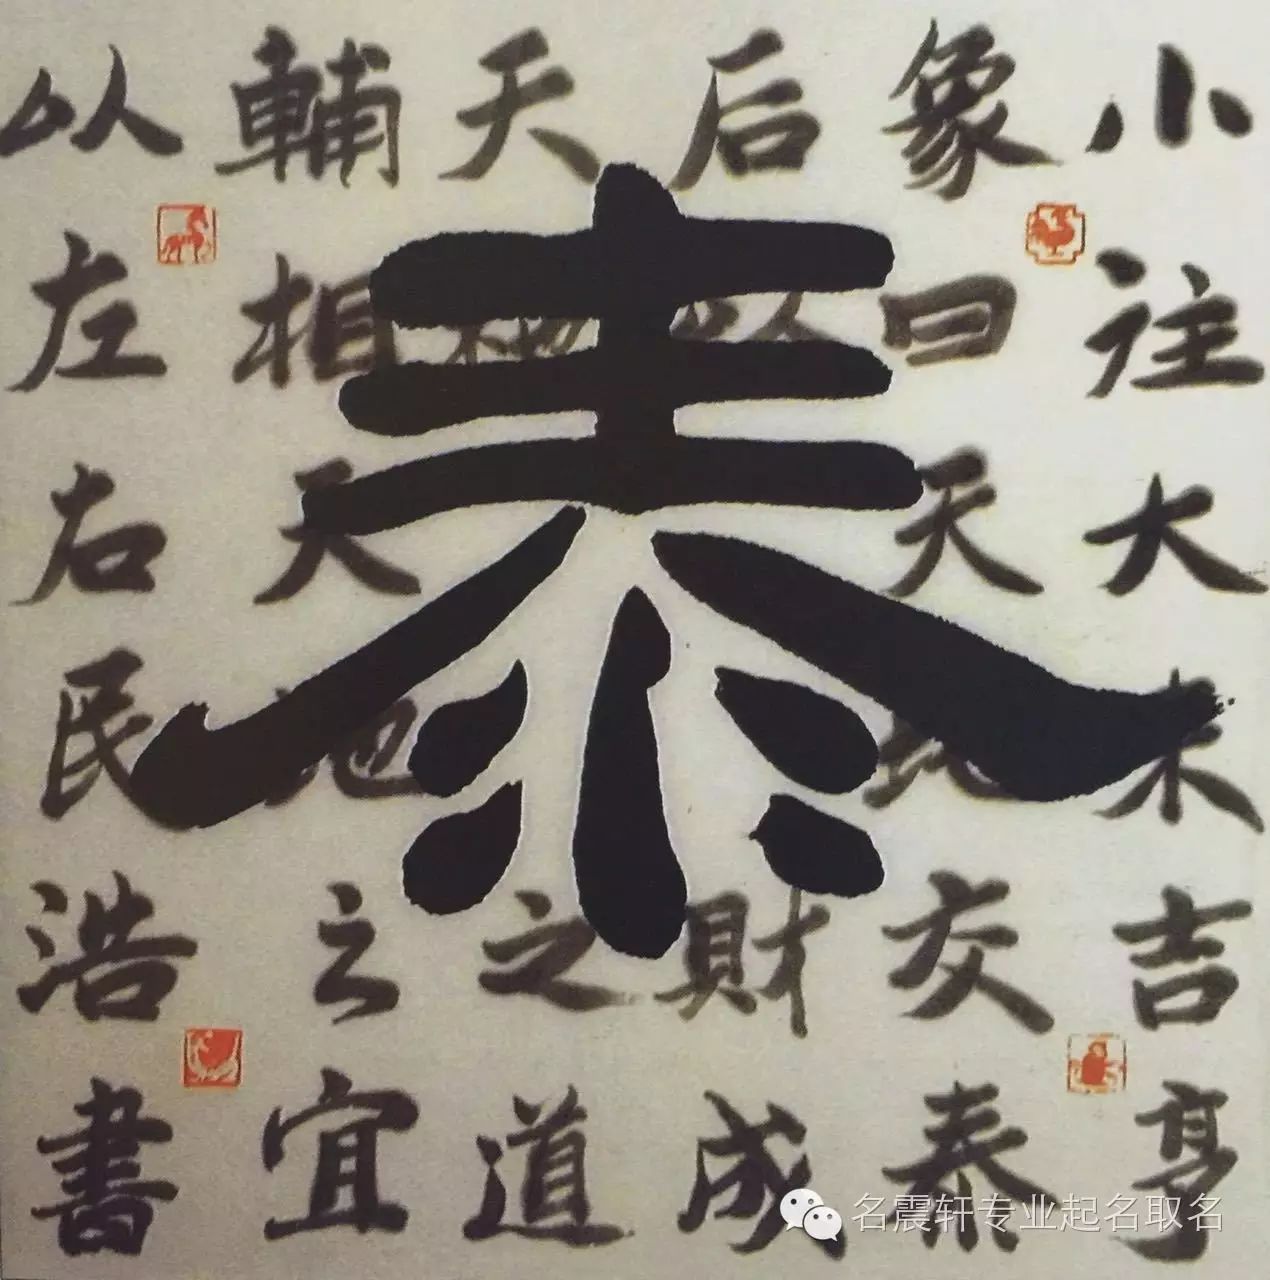 泰
小往大来吉亨
象曰天地交泰
后以財成
天地之道
輔相天地之宜
以左右民浩書
名震轩专业起名取名